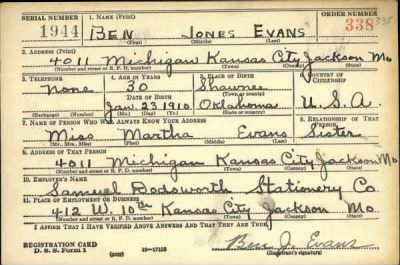 SERIAL NUMBER 1. NAME (Print) ORDER NUMBER
1944 BEN JONES EVANS 338 338
(First) (Middle) (Last)
2. ADDRESS (Print)
4011 Michigan Kansas City Jackson Mo
(Number and street or R. F. D. number) (Town) (County) (State)
3. TELEPHONE 4. AGE IN YEARS 5. PLACE OF BIRTH 6. COUNTRY OF CITIZENSHIP
None 30 Shawnee
(Town or county)
DATE OF BIRTH
Jan. 23, 1910 Oklahoma U.S.A.
(Exchange) (Number) (Mo.) (Day) (Yr.) (State or country)
7. NAME OF PERSON WHO WILL ALWAYS KNOW YOUR ADDRESS 8. RELATIONSHIP OF THAT PERSON
Miss Martha Evans Sister
(Mr., Mrs., Miss) (First) (Middle) (Last)
9. ADDRESS OF THAT PERSON
4011 Michigan Kansas City Jackson Mo
(Number and street or R. F. D. number) (Town) (County) (State)
10. EMPLOYER'S NAME
Samuel Dodsworth Stationery Co
11. PLACE OF EMPLOYMENT OR BUSINESS
412 W. 10th Kansas City Jackson Mo.
(Number and street or R. F. D. number) (Town) (County) (State)
I AFFIRM THAT I HAVE VERIFIED ABOVE ANSWERS AND THAT THEY ARE TRUE.
REGISTRATION CARD
D. S. S. Form 1 16—17105 Ben J. Evans
(Registrant's signature)